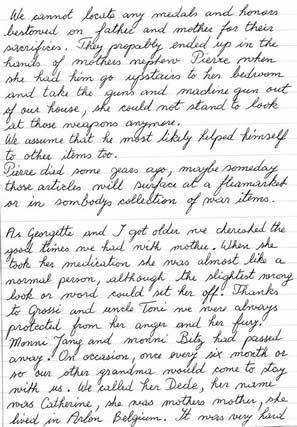 We cannot locate any medals and honors
bestowed on father and mother for their
sacrifices. They propably ended up in the
hands of mothers nephew Pierre when
she had him go upstairs to her bedroom
and take the guns and machine gun out
of our house, she could not stand to look
at those weapons anymore.
We assume that he most likely helped himself
to other items too.
Pierre died some years ago, maybe someday
those articles will surface at a fleamarket
or in sombodys collection of war items.
As Georgette and I got older we cherished the
good times we had with mother. When she
took her medication she was almost like a
normal person, although the slightest wrong
look or word could set her off! Thanks
to Grossi and uncle Toni we were always
protected from her anger and her fury.
Monni Jang and monni Bitz had passed
away. On occasion, once every six month or
so our other grandma would come to stay
with us. We called her Dede, her name
was Catherine, she was mothers mother, she
lived in Arlon Belgium. It was very hard